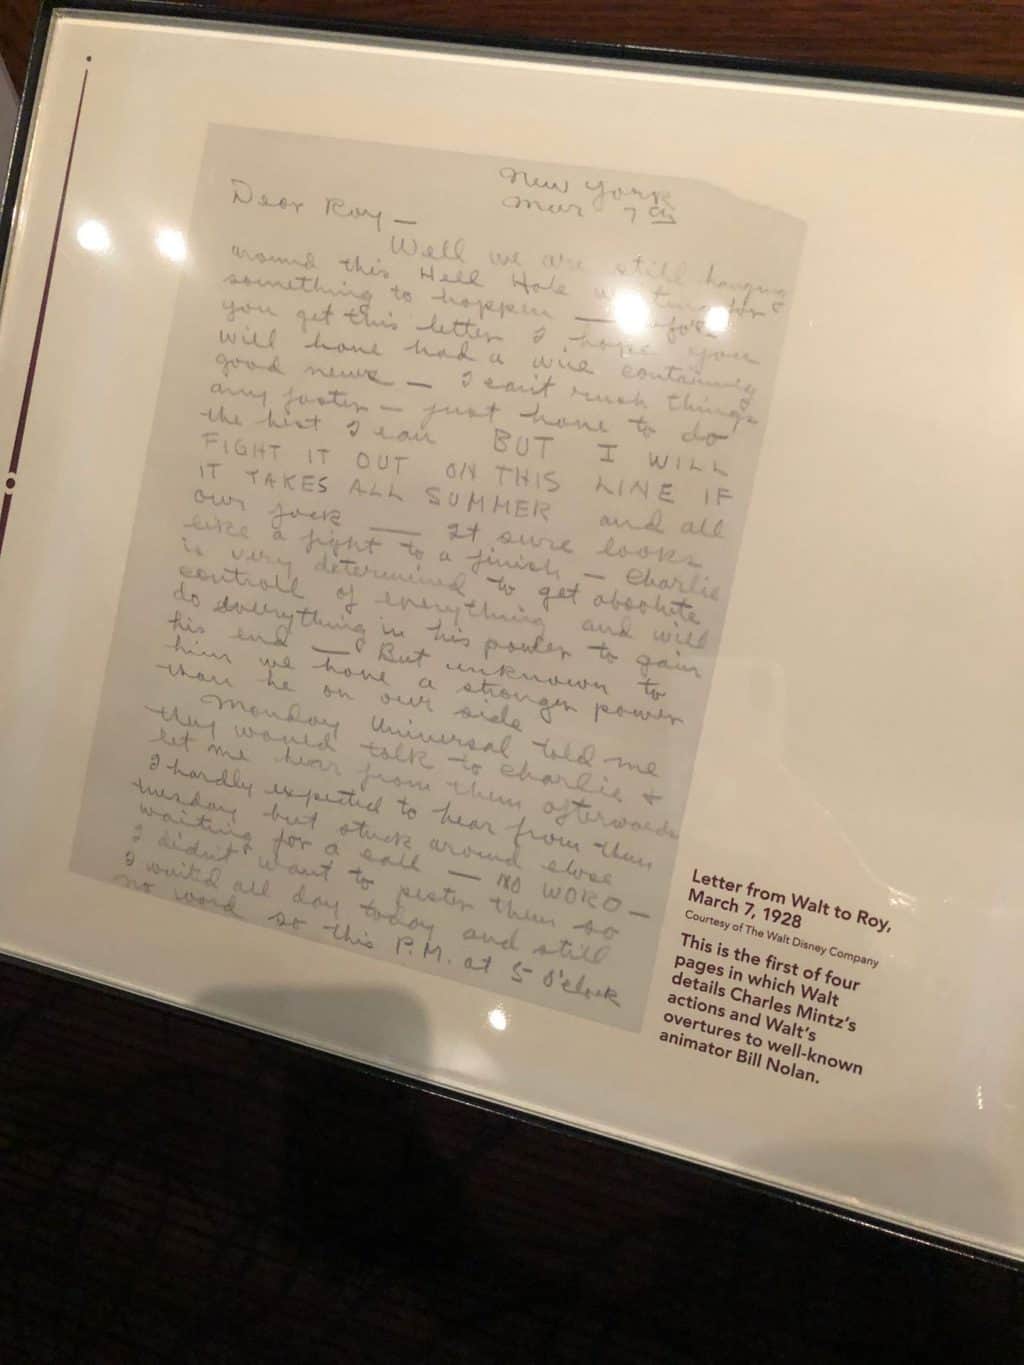 New York
Mar 7th
Dear Roy —
Well we are still hanging
around this Hell Hole waiting for
something to happen — Before
you get this letter I hope you
will have had a wire containing
good news — I can't rush things
any faster — just have to do
the best I can BUT I WILL
FIGHT IT OUT ON THIS LINE IF
IT TAKES ALL SUMMER and all
our jack — It sure looks
like a fight to a finish — Charlie
is very determined to get absolute
controll of everything and will
do everything in his power to gain
his end — But unknown to
him we have a stronger power
than he on our side
Monday Universal told me
they would talk to Charlie &
let me hear from them afterwards
I hardly expected to hear from them
tuesday but stuck around close
waiting for a call — NO WORD —
I didn't want to pester them so
I waited all day today and still
no word so this P.M. at 5 O'clock
Letter from Walt to Roy,
March 7, 1928
Courtesy of The Walt Disney Company
This is the first of four
pages in which Walt
details Charles Mintz's
actions and Walt's
overtures to well-known
animator Bill Nolan.